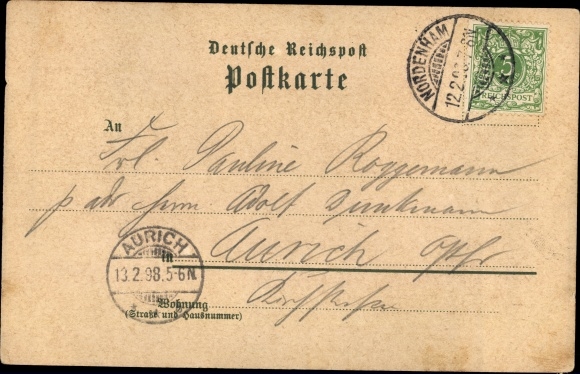 Deutsche Reichspost
Postkarte
NORDENHAM
12.2.98.7-8N.
5
REICHSPOST
An
Frl. Pauline Roggemann
p adr Herrn Adolf
Aurich Ostfr
in
Kirchstraße
AURICH
13.2.98.5-6N.
Wohnung
(Straße und Hausnummer)